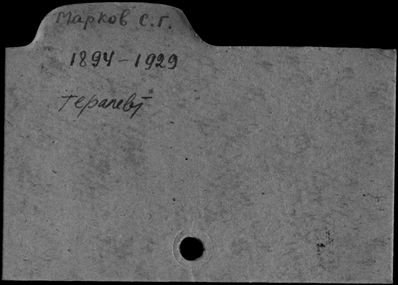 Марков С.Г.
1894-1929
терапевт